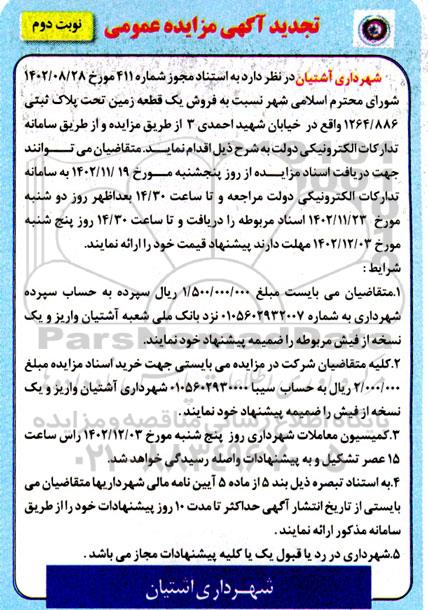 تجدید آگهی مزایده عمومی
نوبت دوم
شهرداری آشتیان در نظر دارد به استناد مجوز شماره ۴۱۱ مورخ ۱۴۰۲/۰۸/۲۸
شورای محترم اسلامی شهر نسبت به فروش یک قطعه زمین تحت پلاک ثبتی
۱۲۶۴/۸۸۶ واقع در خیابان شهید احمدی ۳ از طریق مزایده و از طریق سامانه
تدارکات الکترونیکی دولت به شرح ذیل اقدام نمایند. متقاضیان می توانند
جهت دریافت اسناد مزایده از روز پنجشنبه مورخ ۱۴۰۲/۱۱/۱۹ به سامانه
تدارکات الکترونیکی دولت مراجعه و تا ساعت ۱۴/۳۰ بعداظهر روز دو شنبه
مورخ ۱۴۰۲/۱۱/۲۳ اسناد مربوطه را دریافت و تا ساعت ۱۴/۳۰ روز پنج شنبه
مورخ ۱۴۰۲/۱۲/۰۳ مهلت دارند پیشنهاد قیمت خود را ارائه نمایند.
شرایط :
۱.متقاضیان می بایست مبلغ ۱/۵۰۰/۰۰۰/۰۰۰ ریال سپرده به حساب سپرده
شهرداری به شماره ۰۱۰۵۶۰۲۹۳۲۰۰۷ نزد بانک ملی شعبه آشتیان واریز و یک
نسخه از فیش مربوطه را ضمیمه پیشنهاد خود نمایند.
ParsNamadData
۲.کلیه متقاضیان شرکت در مزایده می بایستی جهت خرید اسناد مزایده مبلغ
۲/۰۰۰/۰۰۰ ریال به حساب سیبا ۰۱۰۵۶۰۲۹۳۰۰۰۰ شهرداری آشتیان واریز و یک
نسخه از فیش را ضمیمه پیشنهاد خود نمایند .
پایگاه اطلاع رسانی مناقصه و مزایده
۳.کمیسیون معاملات شهرداری روز پنج شنبه مورخ ۱۴۰۲/۱۲/۰۳ راس ساعت
۱۵ عصر تشکیل و به پیشنهادات واصله رسیدگی خواهد شد.
۴.به استناد تبصره ذیل بند ۵ از ماده ۵ آیین نامه مالی شهرداریها متقاضیان می
بایستی از تاریخ انتشار آگهی حداکثر تا مدت ۱۰ روز پیشنهادات خود را از طریق
سامانه مذکور ارائه نمایند .
۵.شهرداری در رد یا قبول یک یا کلیه پیشنهادات مجاز می باشد .
شهرداری آشتیان